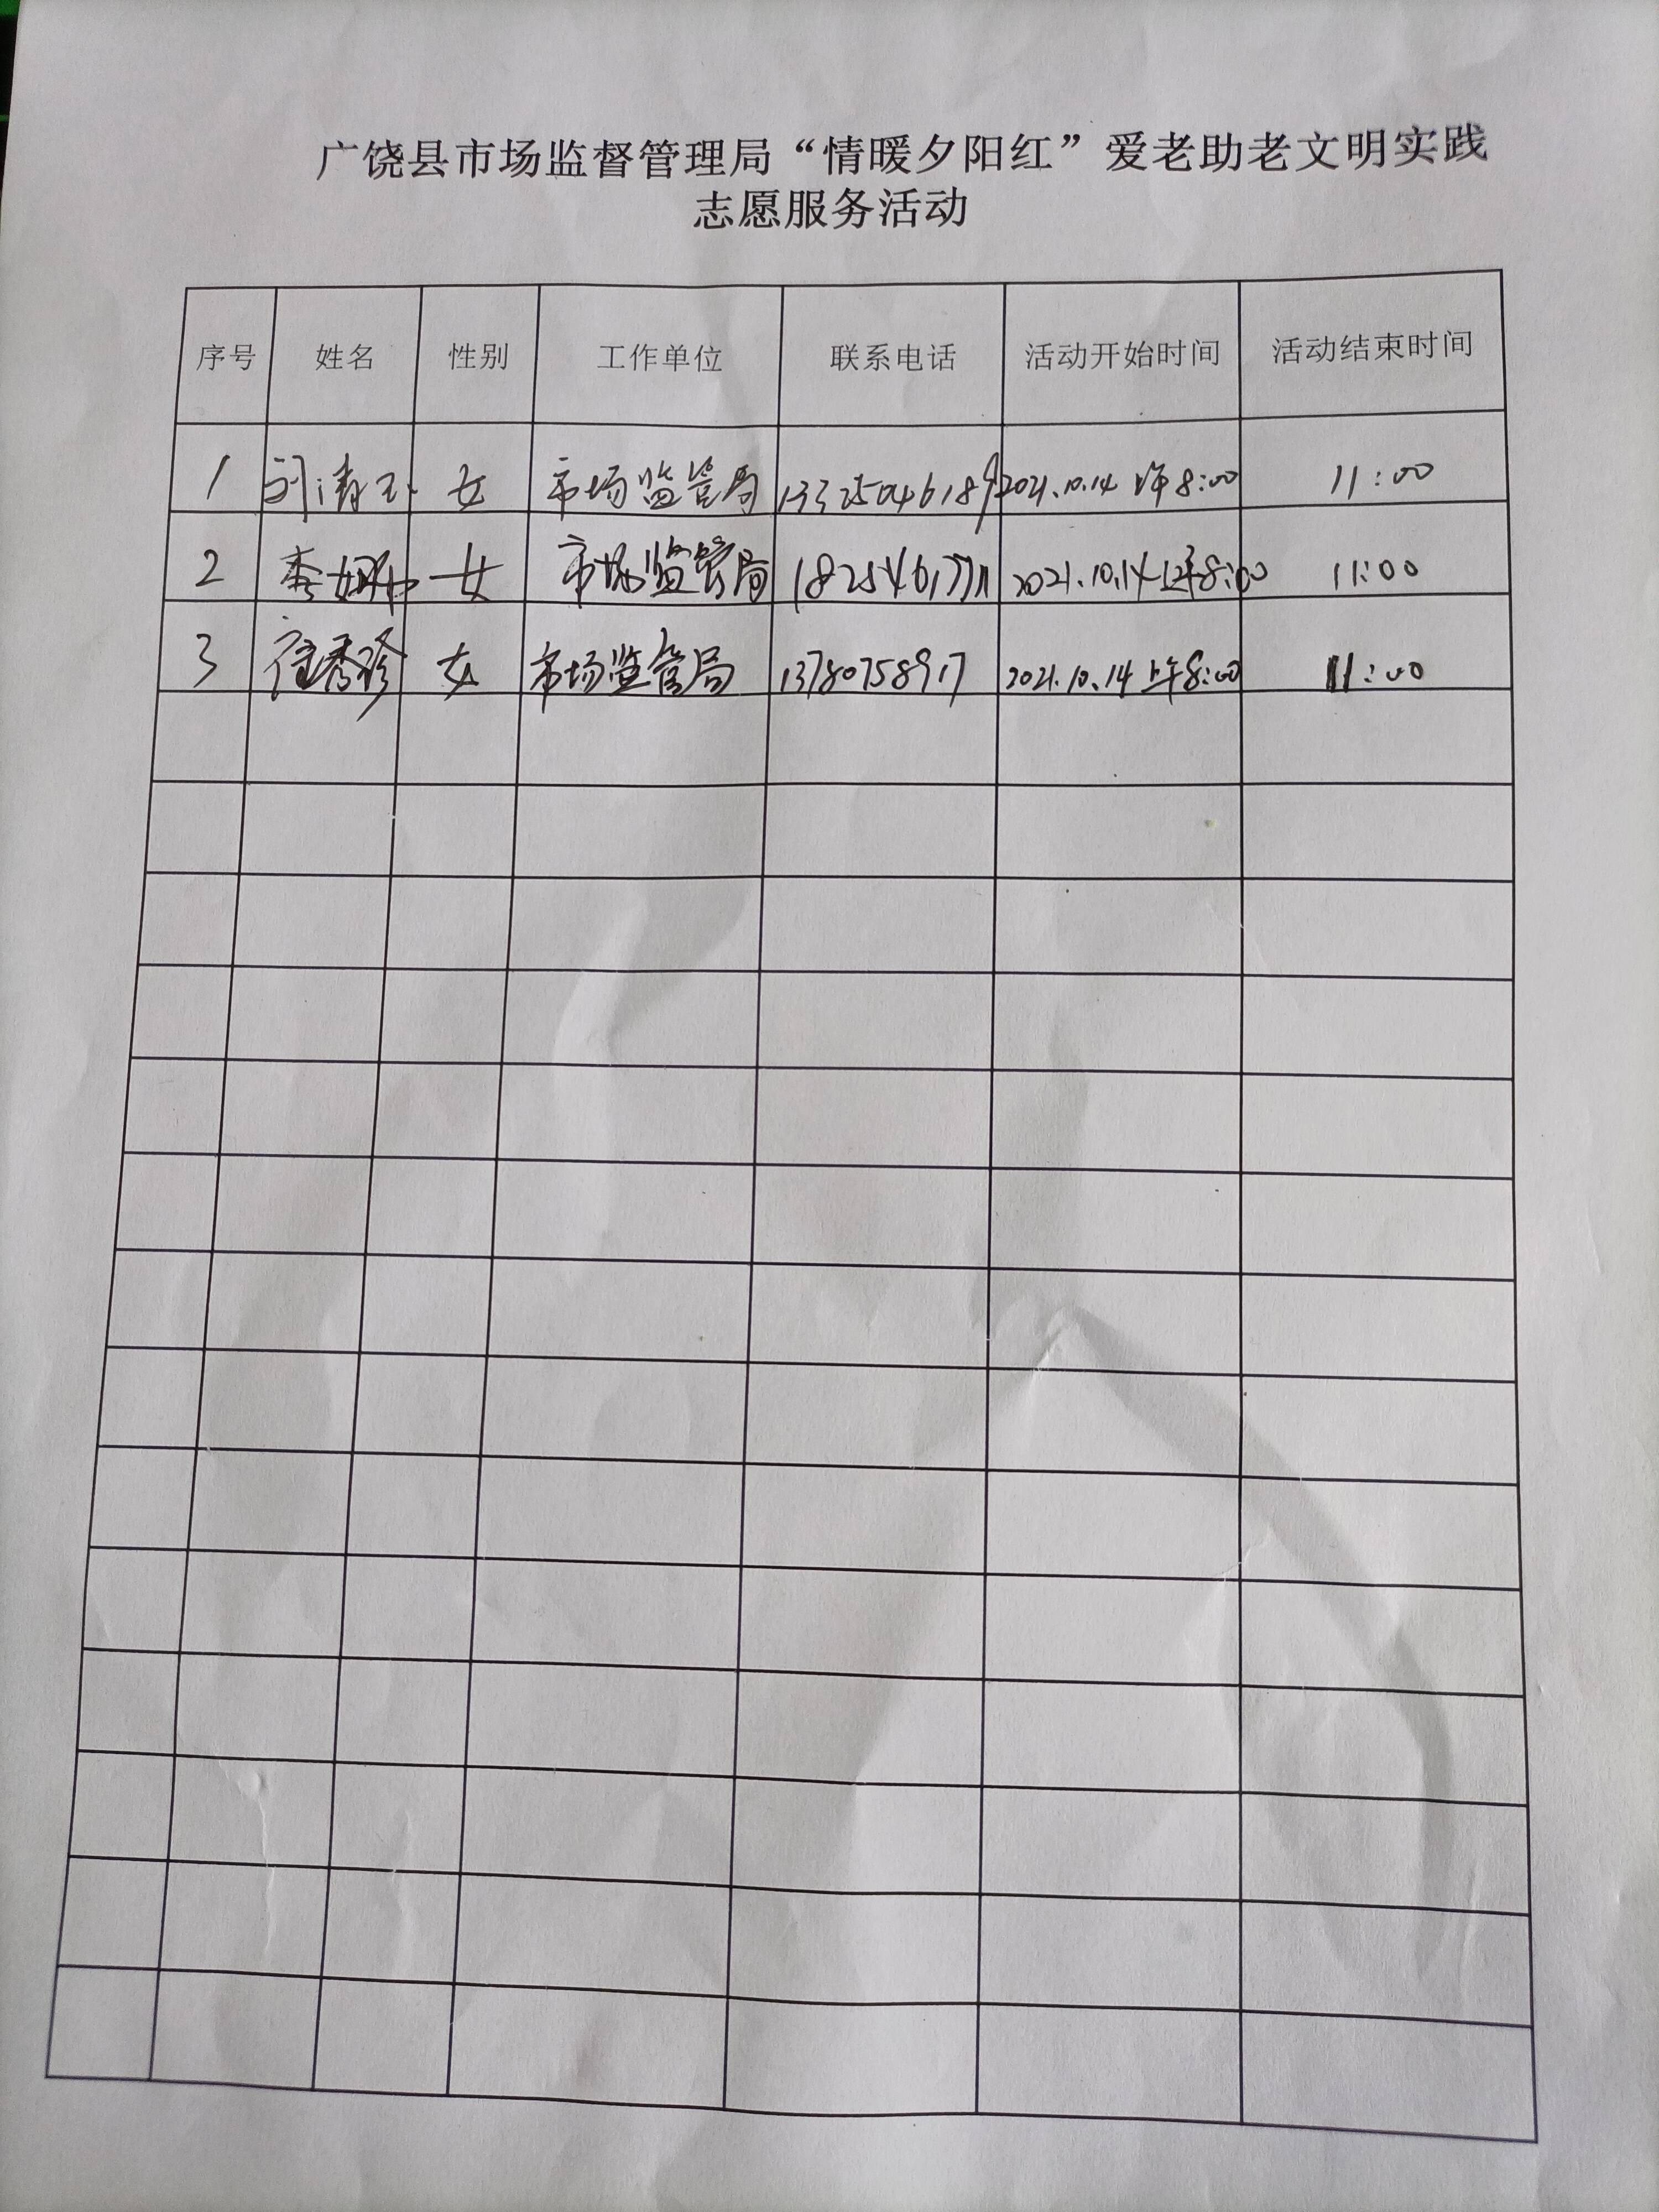 广饶县市场监督管理局“情暖夕阳红”爱老助老文明实践
志愿服务活动
序号 姓名 性别 工作单位 联系电话 活动开始时间 活动结束时间
1 女 市场监管局 13325046189 2021.10.14 上午8:00 11:00
2 李 女 市场监管局 2021.10.14上午8:00 11:00
3 秀珍 女 市场监管局 13780758917 2021.10.14 上午8:00 11:00